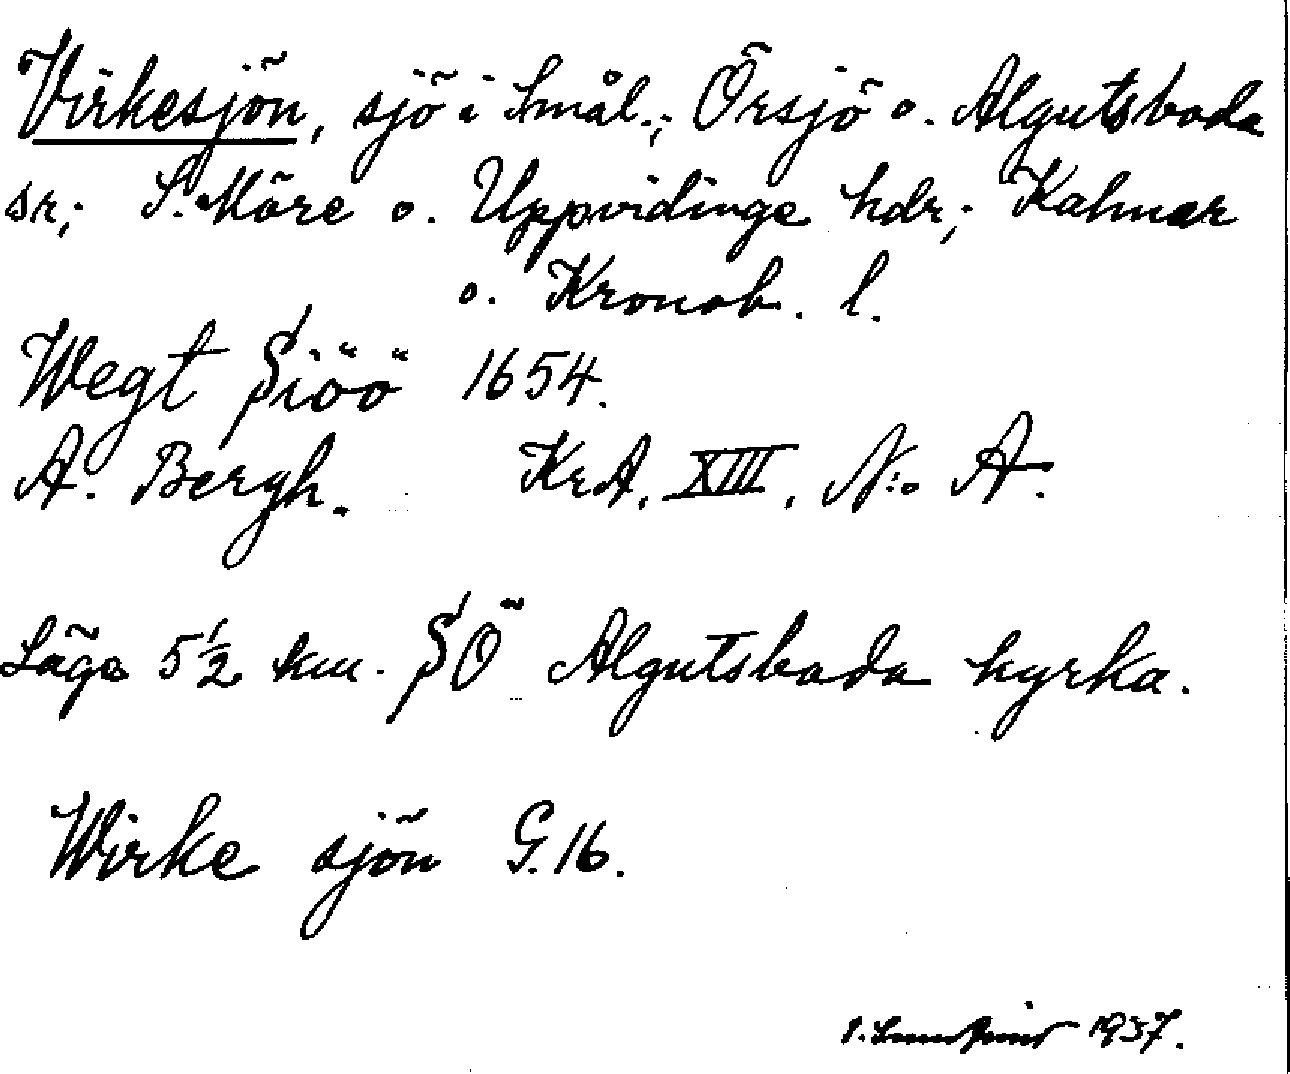 Virkesjön, sjö i Smål.; Örsjö o. Algutsboda
sn; S. Möre o. Uppvidinge hdr; Kalmar
o. Kronob. l.
Wegt Siöö 1654.
A. Bergh. KrA. XIII. N:o A.
Läge 5½ km. SÖ Algutsboda kyrka.
Wirke sjön G.16.
1937.